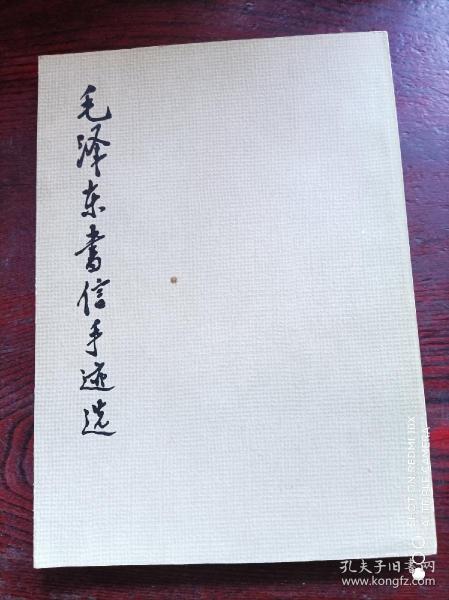 毛泽东书信手迹选
SHOT ON REDMI 10X
AI TRIPLE CAMERA
孔夫子旧书网
www.kongfz.com